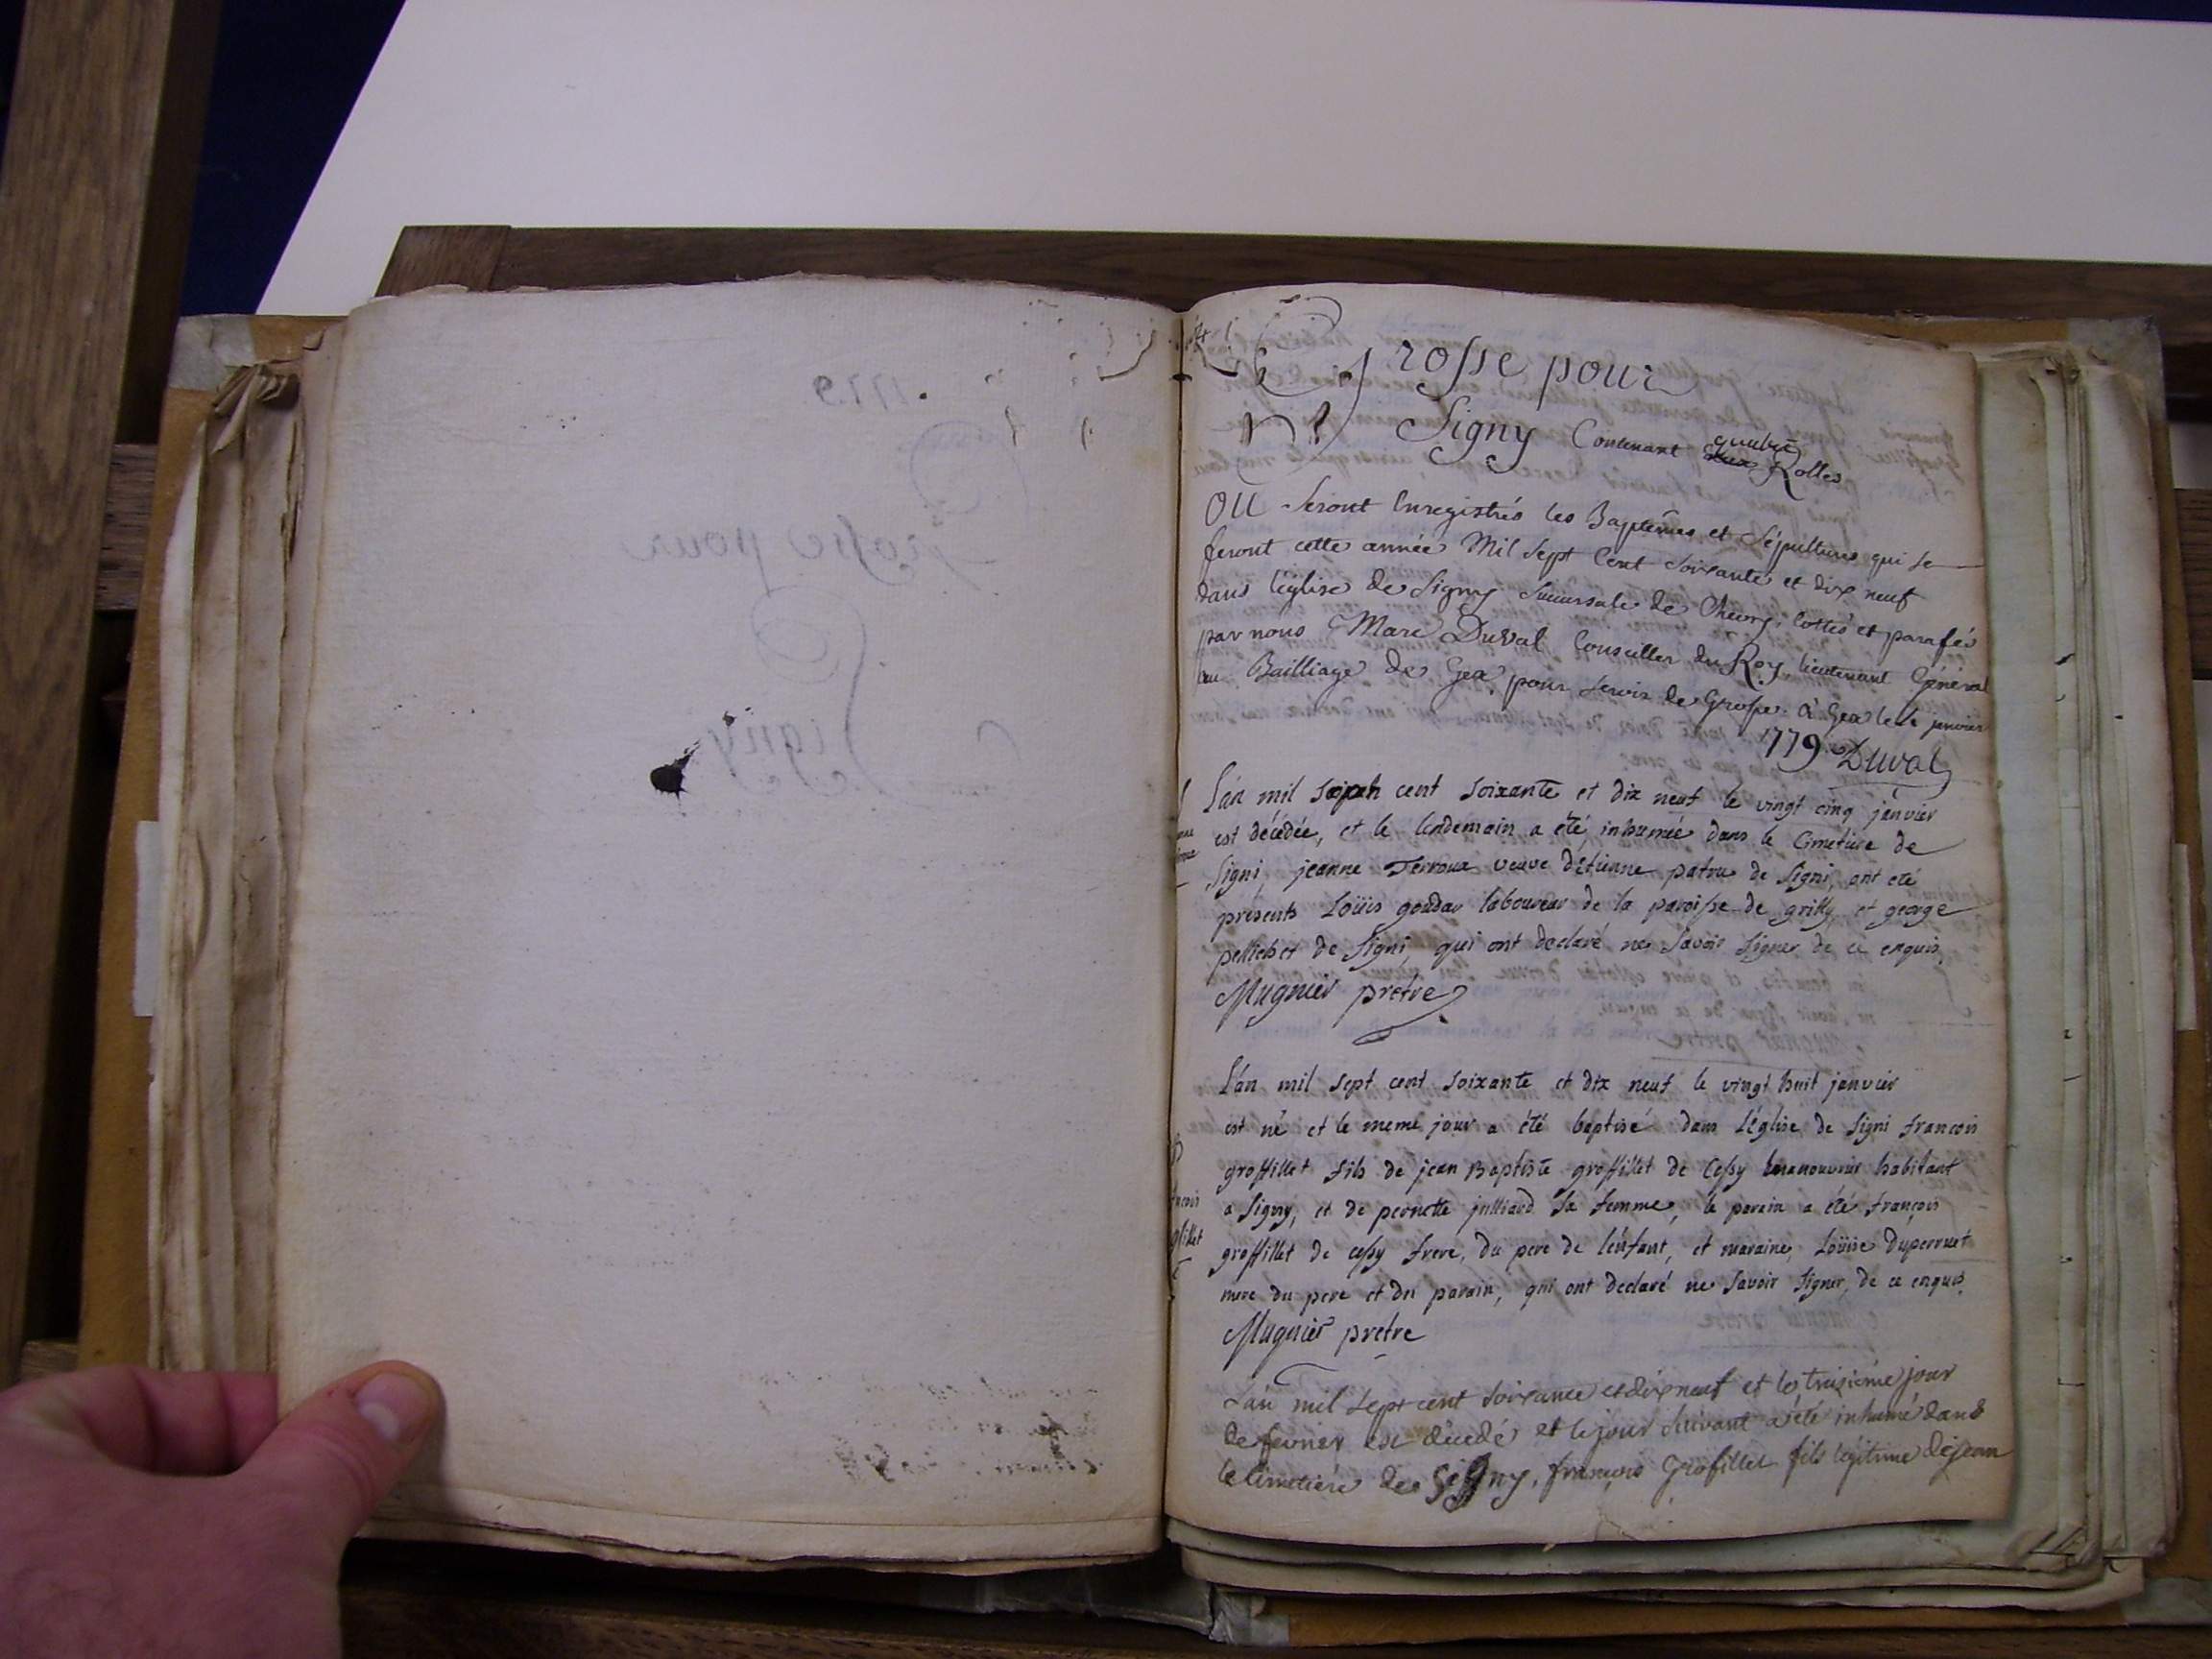 Grosse pour
Signy Contenant quatre Rolles
OU Seront Enregistrés les Baptêmes et Sépultures qui se
feront cette année Mil Sept Cent Soixante et dix neuf
dans l'église de Signy Succursale de Cheury, Cottés et parafés
par nous Marc Duval Conseiller du Roy, lieutenant Général
au Bailliage de Gex, pour servir de Grosse. à Gex le janvier
1779. Duval
L'an mil sept cent soixante et dix neuf le vingt cinq janvier
est décédée, et le lendemain a été inhumée dans le Cimetiere de
Signi, jeanne Terroux veuve d'étienne patru de Signi, ont eté
présents Loüis goudar laboureur de la paroisse de grilly, et george
pellichet de Signi, qui ont declaré ne Savoir Signer de ce enquis
Mugnier prêtre
L'an mil sept cent soixante et dix neuf le vingt huit janvier
est né et le meme jour a été baptisé dans l'église de Signi francois
grossillet fils de jean Baptiste grossillet de Cessy manouvrier habitant
a Signy, et de pernette julliard Sa femme, le parain a été françois
grossillet de cessy frere, du pere de l'enfant, et maraine, Loüise Duperruet
mere du pere et du parain, qui ont declaré ne Savoir Signer, de ce enquis
Mugnier pretre
L'an mil Sept cent Soixante et dix neuf et le treizième jour
de fevrier est décedé et le jour Suivant a été inhumé dans
le Cimetiere de Signy, françois Grosfillet fils légitime de jean